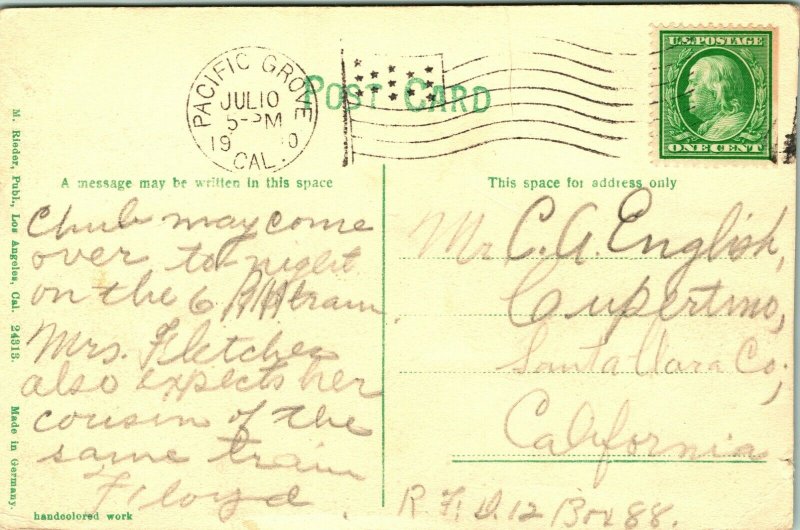 PACIFIC GROVE
JUL 10
5-PM
19 0
CAL.
POST CARD
U.S. POSTAGE
ONE CENT
A message may be written in this space
This space for address only
Chub may come
over to-night
on the 6 train.
Mrs. Fletcher
also expects her
cousin of the
same train
Floyd.
Mr C. A. English,
Cupertino,
Santa Clara Co,
California.
R. F. D. 12 Box 88.
M. Rieder, Publ., Los Angeles, Cal. 24313. Made in Germany.
handcolored work